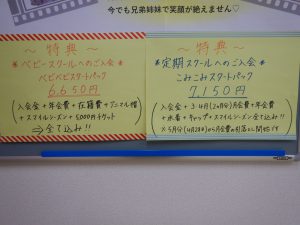 今でも兄弟姉妹で笑顔が絶えません♡
～特典～
*ベビースクールへのご入会*
ベビベビスタートパック
6,650円
(入会金+年会費+在籍費+アニマル帽
+スマイルシーズン+5,000円チケット)
⇒全て込み!!
～特典～
*定期スクールへのご入会*
こみこみスタートパック
7,150円
(入会金+3・4月(2ヵ月分)月会費+年会費
+水着+キャップ+スマイルシーズン全て込み!!)
※5月分(4月28日)から月会費の引落とし開始です